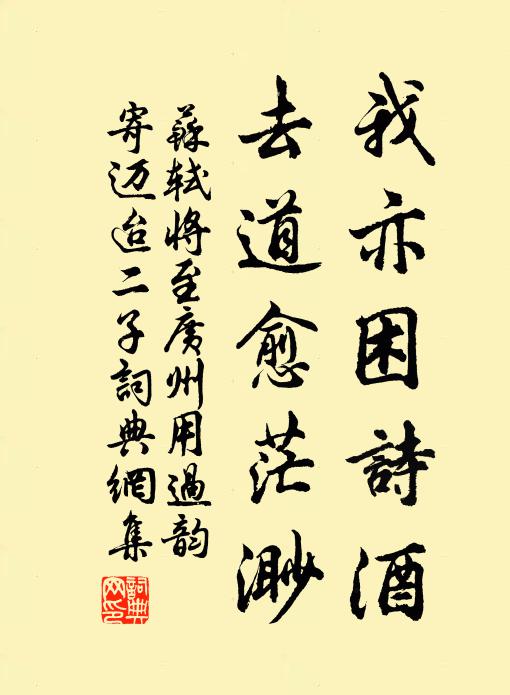 我亦困詩酒
去道愈茫渺
蘇軾將至廣州用過韵
寄迈迨二子詞典網集
詞典网印